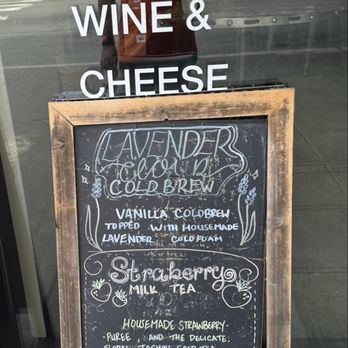 WINE &
CHEESE
LAVENDER
CLOUD
COLDBREW
VANILLA COLDBREW
TOPPED WITH HOUSEMADE
LAVENDER COLD FOAM
Straberry
MILK TEA
HOUSEMADE STRAWBERRY
PUREE, AND THE DELICATE,
FLORAL JASMINE GOLD TEA